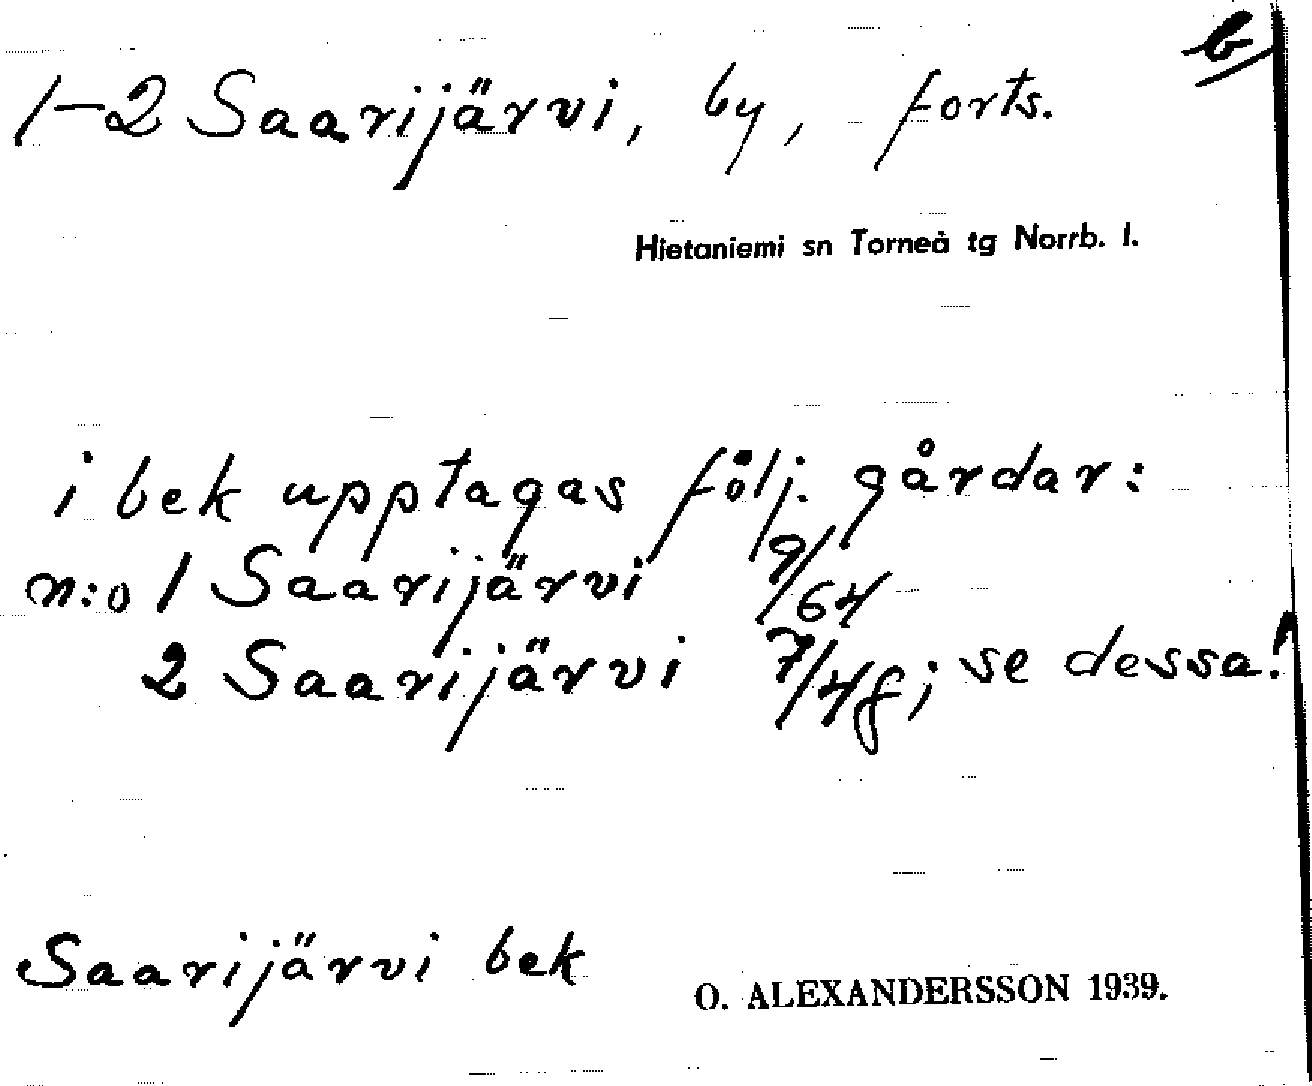 b
1-2 Saarijärvi, by, forts.
Hietaniemi sn Torneå tg Norrb. l.
i bek upptagas följ. gårdar:
n:o 1 Saarijärvi 9/64
2 Saarijärvi 7/48; se dessa!
Saarijärvi bek
O. ALEXANDERSSON 1939.